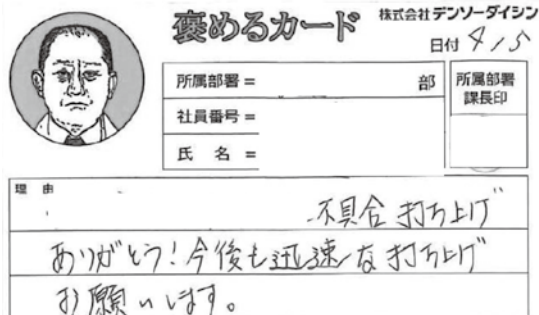 褒めるカード
株式会社デンソーダイシン
日付 4/5
所属部署 = 部
社員番号 =
氏 名 =
所属部署
課長印
理 由
不具合打ち上げ
ありがとう!今後も迅速な打ち上げ
お願いします。